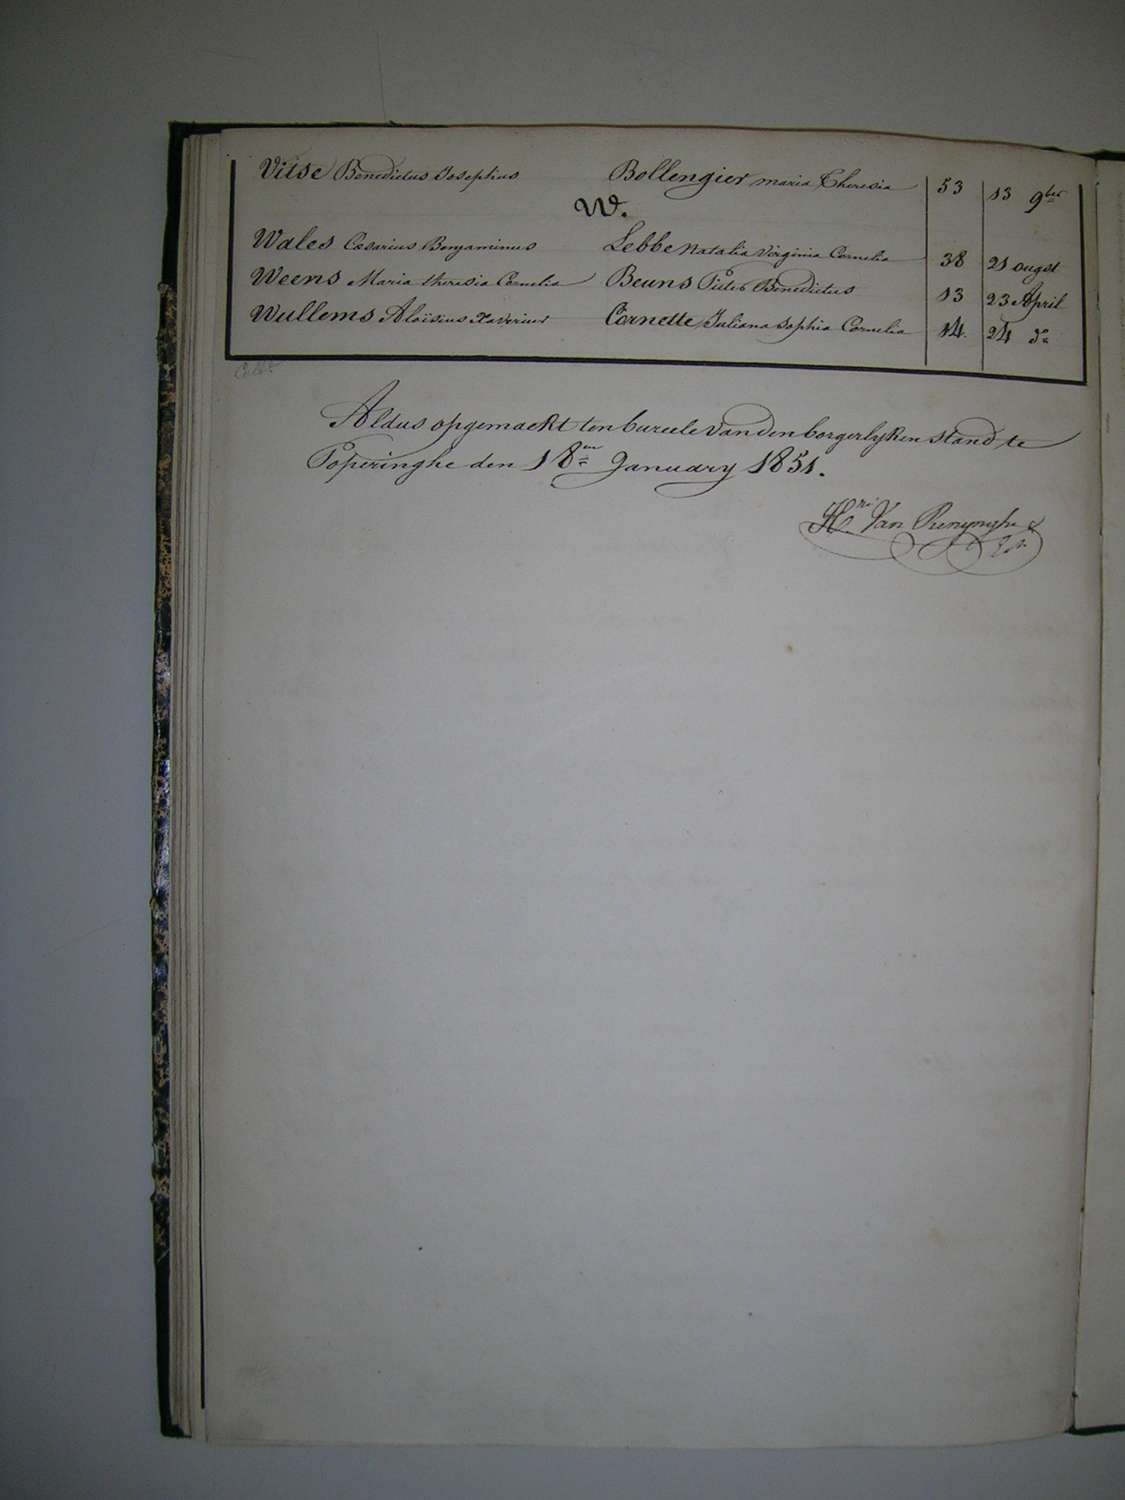 Vitse Benedictus Josephus Bollengier maria Theresia 53 13 9ber
W.
Wales Cæsarius Benjaminus Lebbe Natalia Virginia Cornelia 38 21 ougst
Weens Maria theresia Cornelia Beuns Pieter Benedictus 13 23 April
Wullems Aloïsius Xaverius Cornette Juliana Sophia Cornelia 14. 24 do
Aldus opgemaekt ten bureele van den borgerlyken stand te
Poperinghe den 18en January 1851.
Hri Van Renynghe